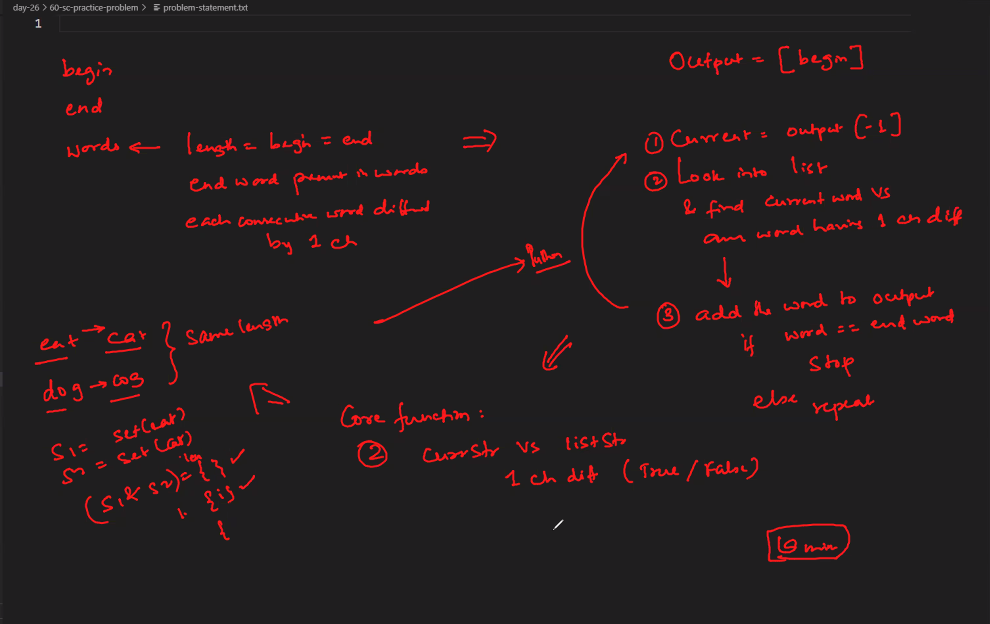 day-26 > 60-sc-practice-problem > problem-statement.txt
1
begin
end
words ← length = begin = end ⇒
end word present in words
each consecutive word differed
by 1 ch
Output = [begin]
① Current = output [-1]
② Look into list
& find current word vs
word having 1 ch diff
③ add the word to output
if word == end word
stop
else repeat
Python
eat → cat } same length
dog → cog
S1 = set(eat)
S2 = set(cat)
(S1 & S2) =
Core function:
② currStr vs listStr
1 ch diff (True / False)
min